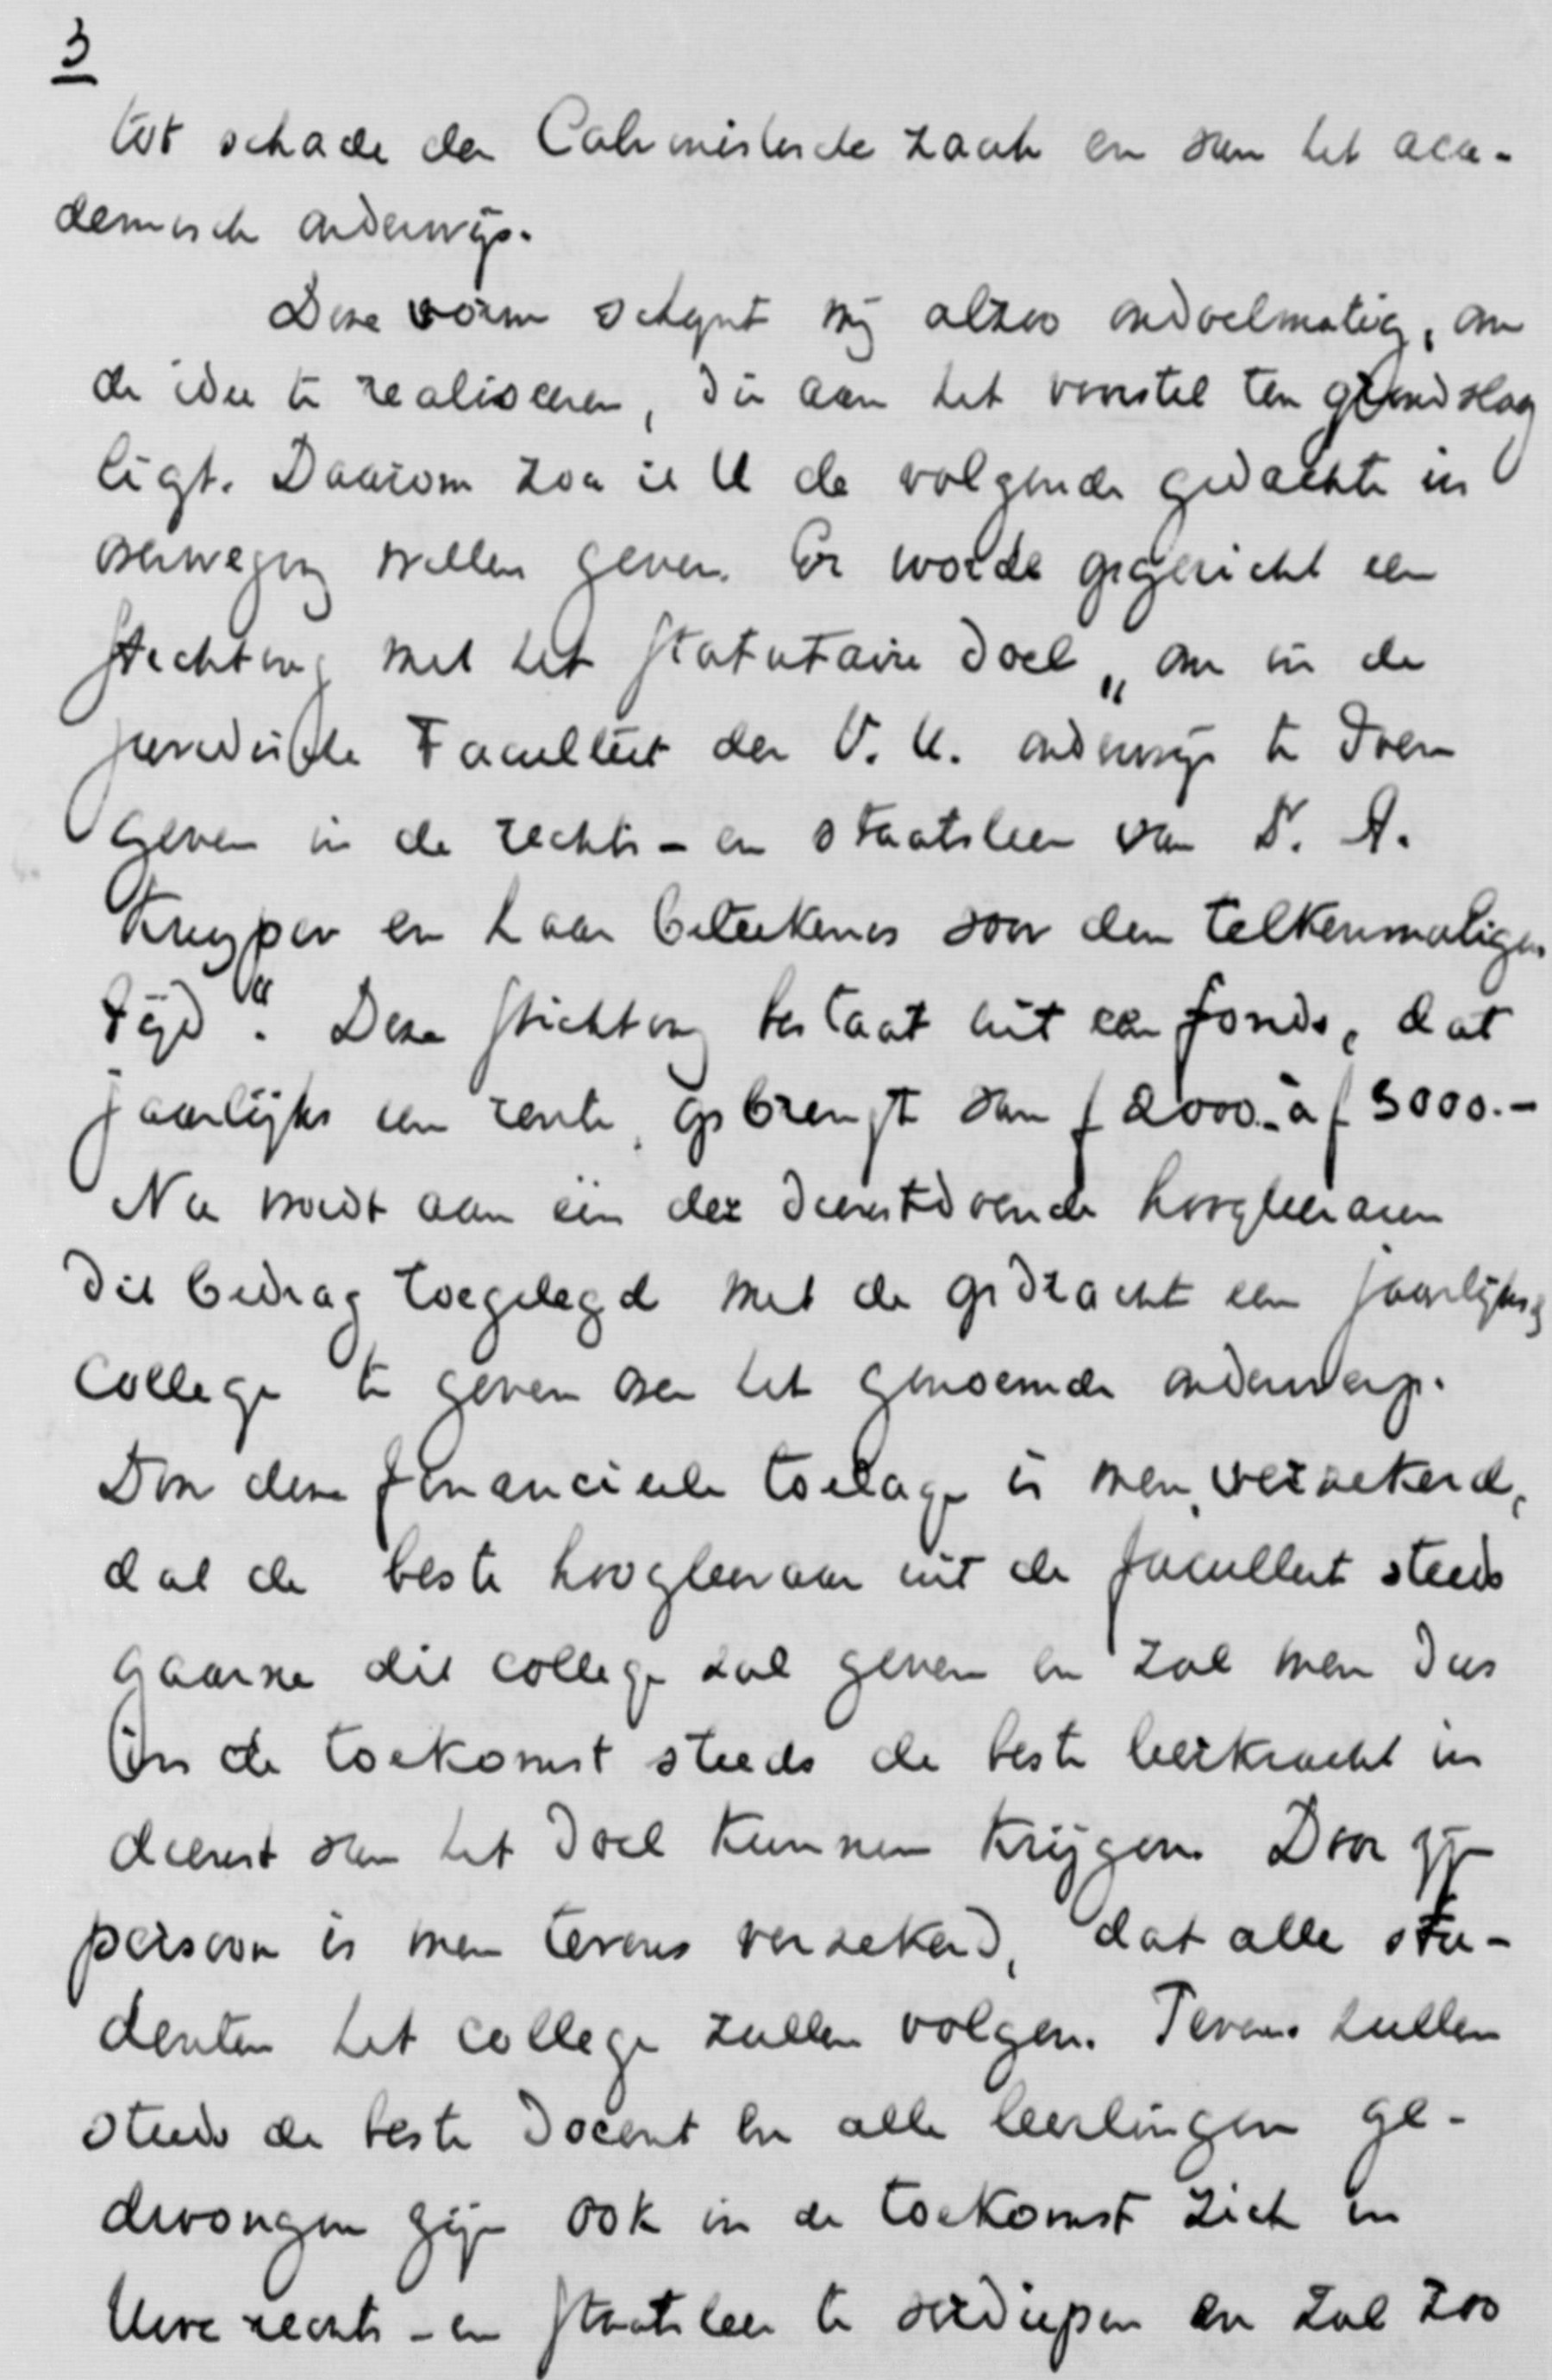 3
tot schade der Calvinistische zaak en van het aca-
demisch onderwijs.
Deze vorm schynt mij alzoo ondoelmatig, om
de idee te realiseeren, die aan het voorstel ten grondslag
ligt. Daarom zou ik U de volgende gedachte in
overweging willen geven. Er worde opgericht een
stichting met het statutaire doel „om in de
juridische Faculteit der V. U. onderwijs te doen
geven in de rechts- en staatsleer van Dr. A.
Kuyper en haar beteekenis voor den telkenmaligen
tijd“. Deze stichting bestaat uit een fonds, dat
jaarlijks een rente opbrengt van f 2000.- à f 3000.-
Nu wordt aan één der dienstdoende hoogleeraren
dit bedrag toegelegd met de opdracht een jaarlijksch
college te geven over het genoemde onderwerp.
Door deze financieele toelage is men verzekerd,
dat de beste hoogleeraar uit de faculteit steeds
gaarne dit college zal geven en zal men dus
in de toekomst steeds de beste leerkracht in
dienst van het doel kunnen krijgen. Door zijn
persoon is men tevens verzekerd, dat alle stu-
denten het college zullen volgen. Tevens zullen
steeds de beste docent en alle leerlingen ge-
dwongen zijn ook in de toekomst zich in
Uwe rechts- en staatsleer te verdiepen en zal zoo